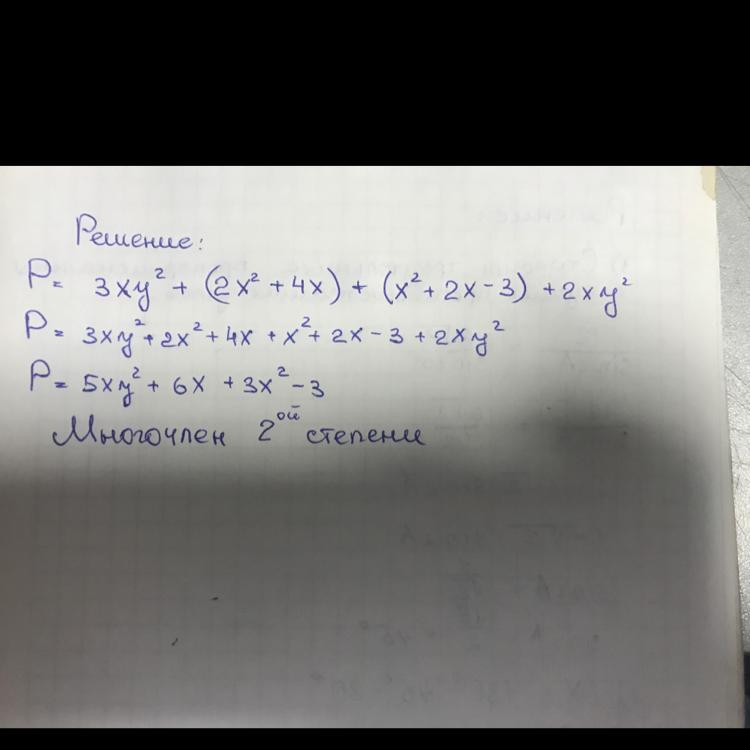 Решение:
P= 3xy² + (2x² + 4x) + (x² + 2x - 3) + 2xy²
P= 3xy² + 2x² + 4x + x² + 2x - 3 + 2xy²
P= 5xy² + 6x + 3x² - 3
Многочлен 2ой степени